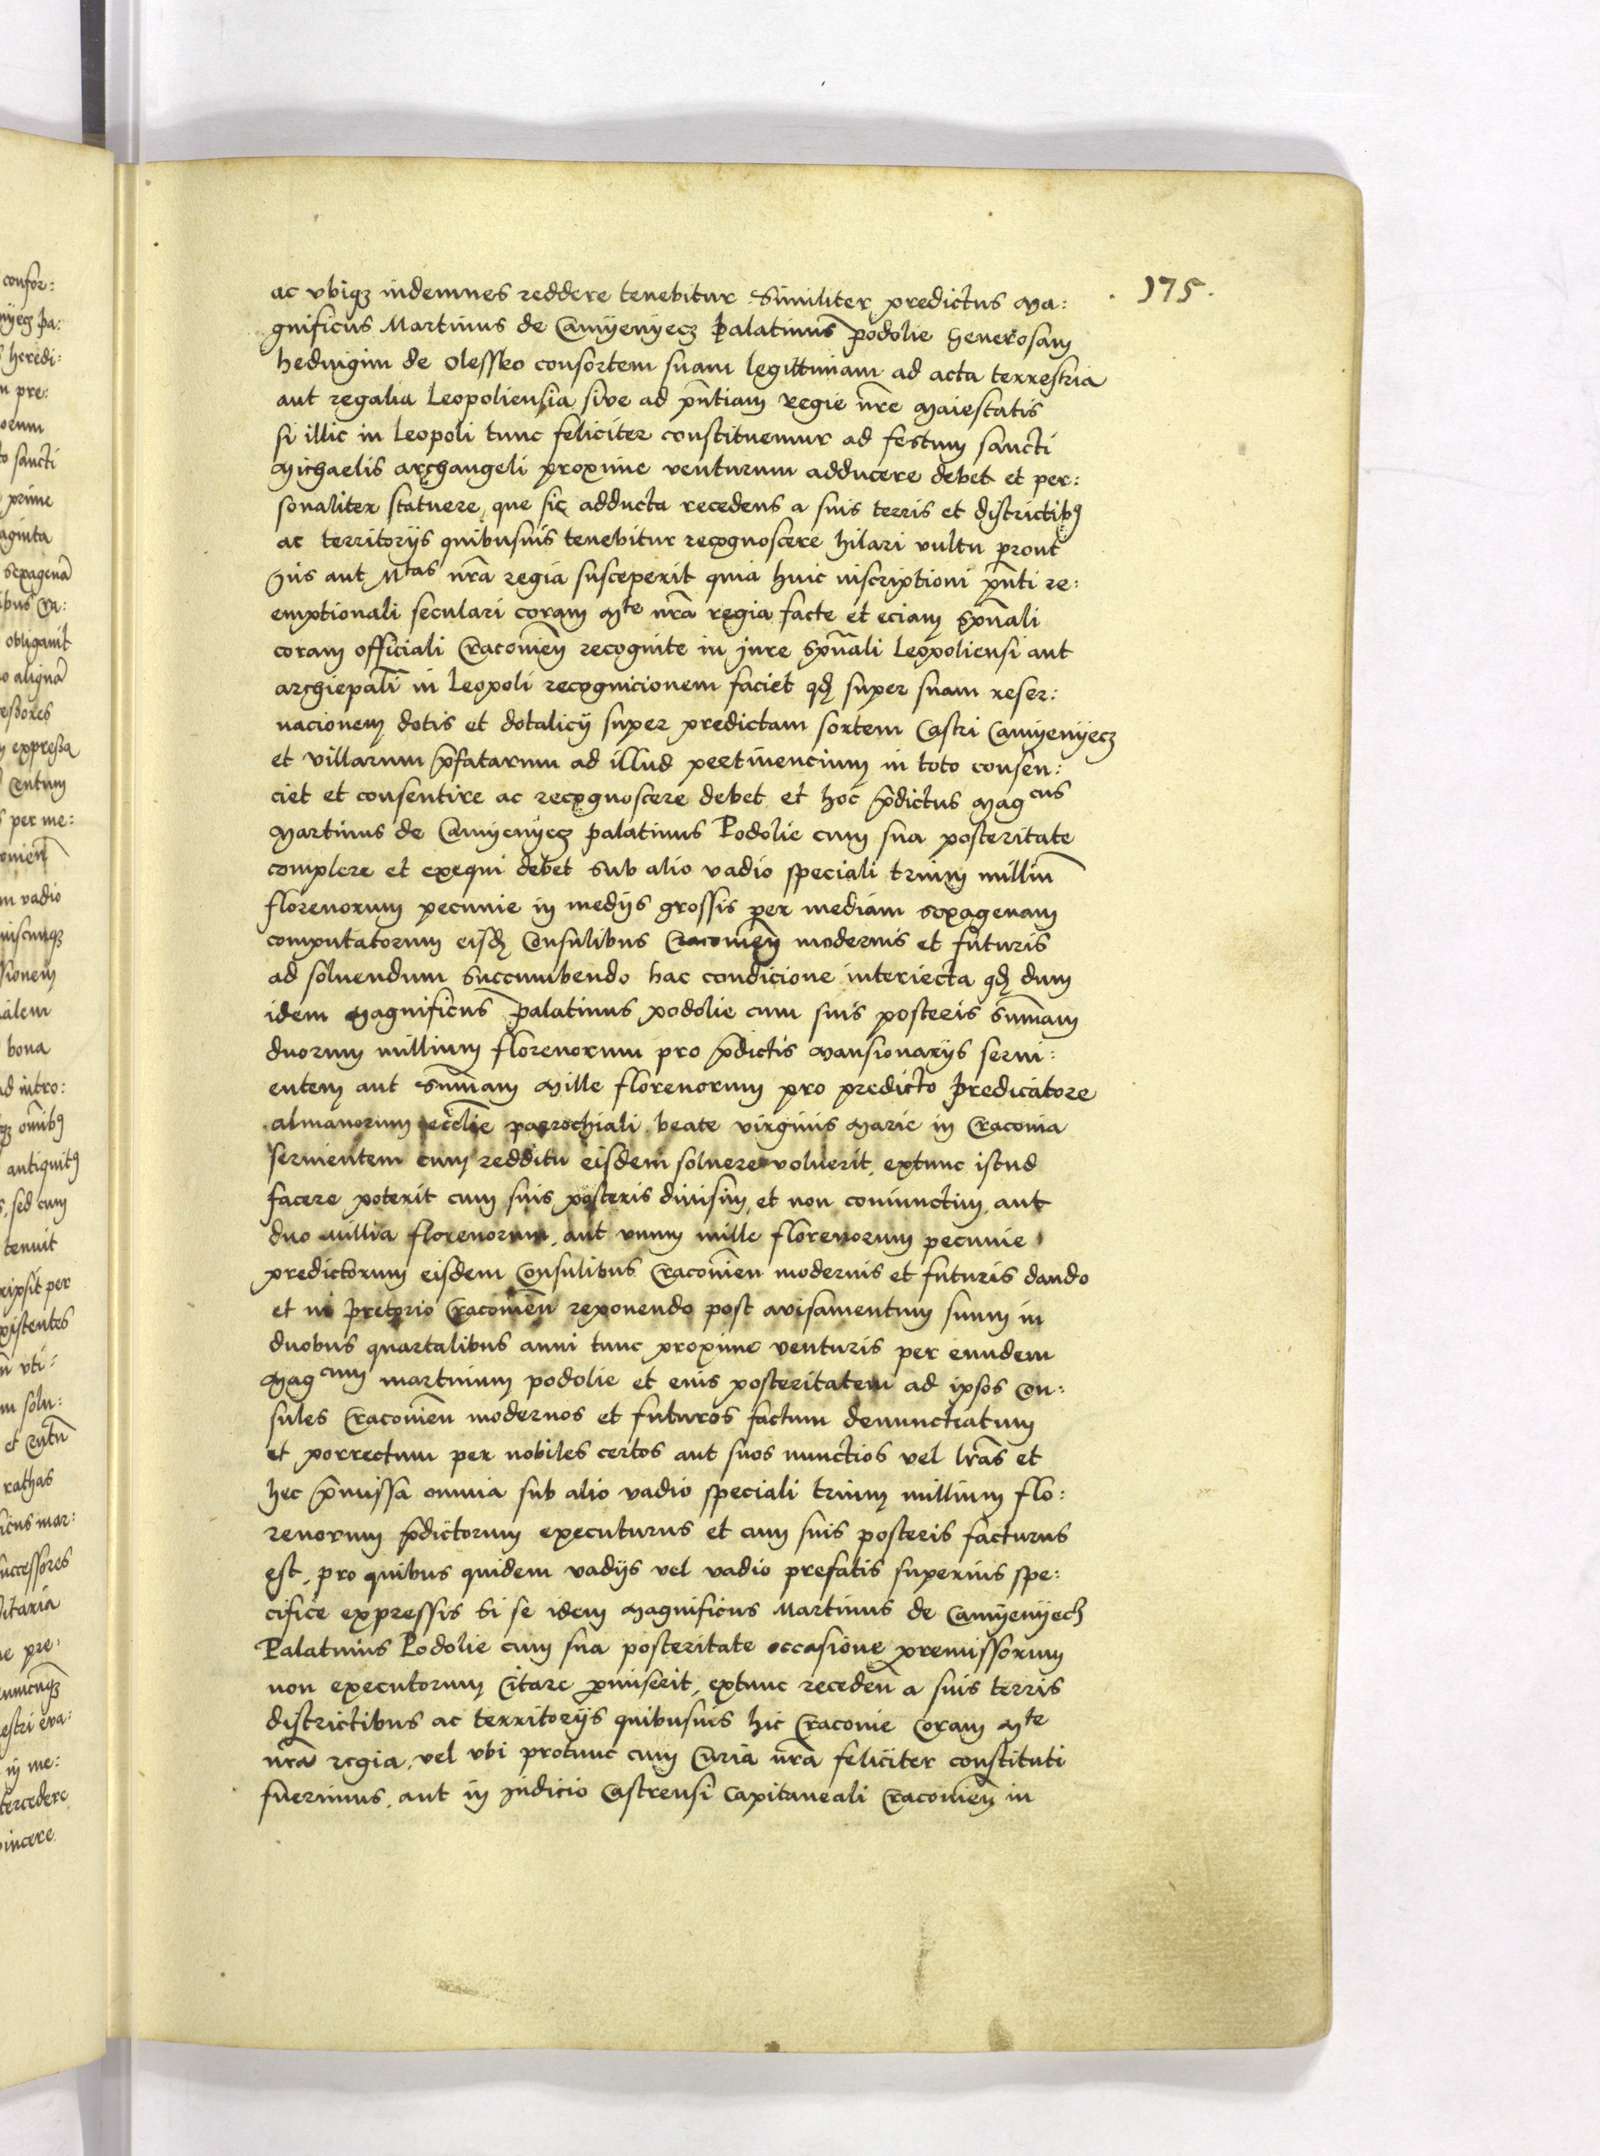 . 175 .
ac vbiqz indemnes reddere tenebitur Similiter predictus Ma:
gnificus Martinus de Camyenyecz palatinus podolie Generosam
hedwigim de olessko consortem suam legittimam ad acta terrestria
aut regalia Leopoliensia sive ad pñtiam Regie nr̃e Maiestatis
si illic in Leopoli tunc feliciter constituemur ad festum sancti
Michaelis archangeli proxime venturum adducere debet et per:
sonaliter statuere, que sic adducta recedens a suis terris et districtibꝰ
ac territorijs quibusuis tenebitur recognoscere hilari vultu prout
Jus aut Mtas nr̃a regia susceperit quia huic inscriptioni pñti re:
emptionali seculari coram Mte nr̃a regia facte et eciam spũali
coram officiali Cracouieñ recognite in jure spũali Leopoliensi aut
archiepãli in Leopoli recognicionem faciet qđ super suam reser:
uacionem dotis et dotalicij super predictam sortem Castri Camyenyecz
et villarum p̃fatarum ad illud pertinencium in toto consen:
ciet et consentire ac recognoscere debet et hoc p̃dictus Magcus
Martinus de Camyenyecz palatinus Podolie cum sua posteritate
complere et exequi debet sub alio vadio speciali trium milliũ
florenorum pecunie in medijs grossis per mediam sexagenam
computatorum eisđ Consulibus Cracouieñ modernis et futuris
ad soluendum succumbendo hac condicione interiecta qđ dum
idem Magnificus palatinus podolie cum suis posteris sum̃am
duorum millium florenorum pro p̃dictis Mansionarijs serui:
entem aut sum̃am Mille florenorum pro predicto predicatore
almanorum eccl̃ie parrochiali beate virginis Marie in Cracouia
seruientem cum redditu eisdem soluere voluerit, extunc istud
facere poterit cum suis posteris diuisim, et non coniunctim, aut
duo millia florenorum, aut vnum mille florenorum pecunie
predictorum eisdem Consulibus Cracouieñ modernis et futuris dando
et in pretorio Cracouieñ reponendo post avisamentum suum in
duobus quartalibus anni tunc proxime venturis per eundem
Magcum martinum podolie et eius posteritatem ad ipsos Con:
sules Cracouieñ modernos et futuros factum denuncteatum
et porrectum per nobiles certos aut suos nunctios vel lr̃as et
hec p̃missa omnia sub alio vadio speciali trium millium flo:
renorum p̃dictorum executurus et cum suis posteris facturus
est, pro quibus quidem vadijs vel vadio prefatis superius spe:
cifice expressis Si se idem Magnificus Martinus de Camyenyecz
Palatinus Podolie cum sua posteritate occasione premissorum
non executorum Citare p̱miserit, extunc recedeñ a suis terris
districtibus ac territorijs quibusuis hic Cracouie Coram Mte
nr̃a regia, vel vbi protunc cum Curia nr̃a feliciter constituti
fuerimus, aut in Judicio Castrensi Capitaneali Cracouieñ in